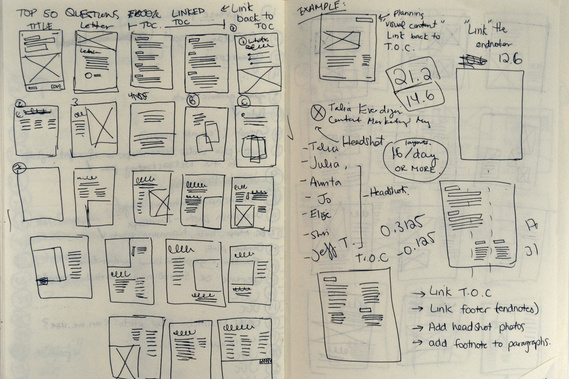 TOP 50 QUESTIONS
TITLE
Letter
T.O.C.
LINKED
TOC
← Link
back to
TOC
3
B
C
EXAMPLE:
planning
"visual content"
Link back to
T.O.C.
"Link" the
endnoter
12.6
21.2
14.6
Content Marketing
Headshot
- Talia
- Julia,
- Anita
- Jo
- Elise
- Shri
- Jeff T.
- Headshot.
16/day
OR MORE
0.3125
T.O.C - 0.125
17
21
→ Link T.O.C
→ Link footer (endnotes)
→ Add headshot photos
→ add footnote to paragraphs.